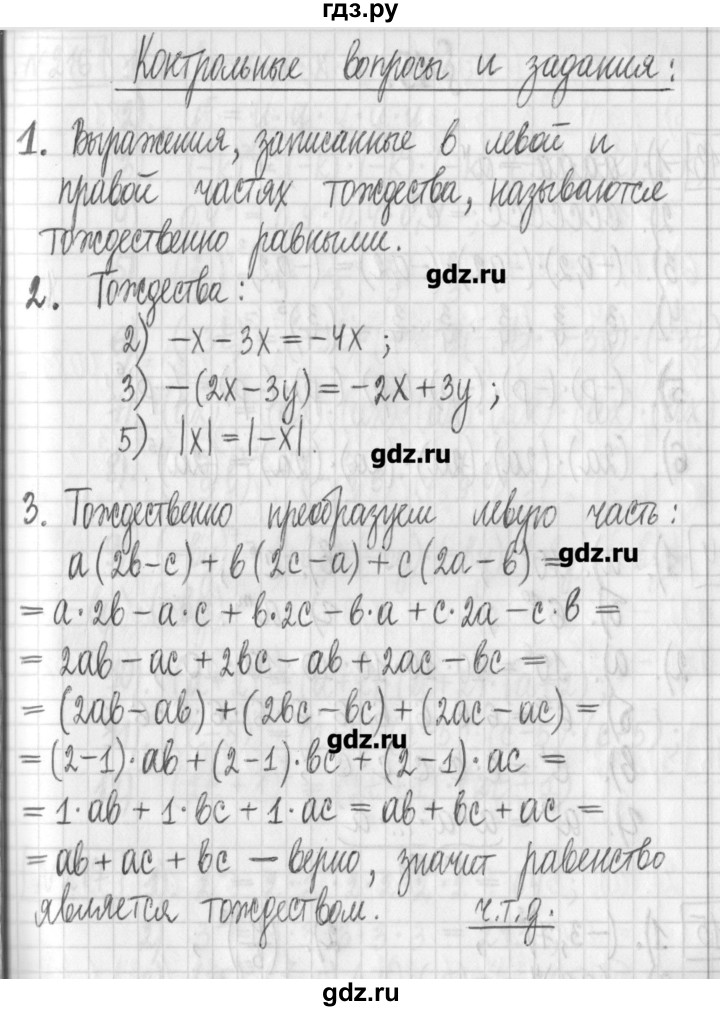 гдз.ру
Контрольные вопросы и задания:
1. Выражения, записанные в левой и
правой частях тождества, называются
тождественно равными.
gdz.ru
2. Тождества:
2) -x - 3x = -4x ;
3) -(2x - 3y) = -2x + 3y ;
5) |x| = |-x|.
gdz.ru
3. Тождественно преобразуем левую часть:
a(2b-c) + b(2c-a) + c(2a-b) =
gdz.ru
= a·2b - a·c + b·2c - b·a + c·2a - c·b =
= 2ab - ac + 2bc - ab + 2ac - bc =
= (2ab - ab) + (2bc - bc) + (2ac - ac) =
gdz.ru
= (2-1)·ab + (2-1)·bc + (2-1)·ac =
= 1·ab + 1·bc + 1·ac = ab + bc + ac =
= ab + ac + bc - верно, значит равенство
является тождеством. ч.т.д.
gdz.ru